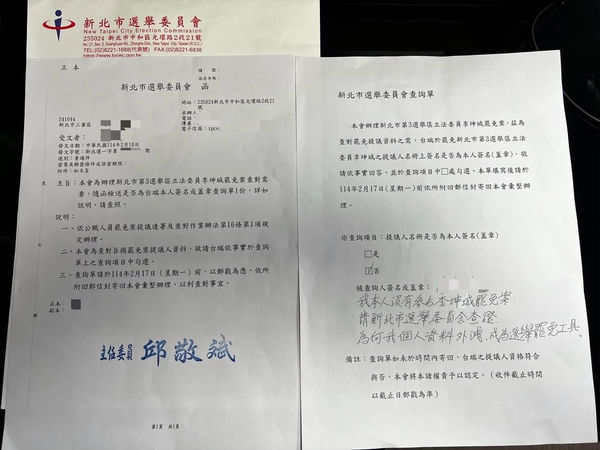 新北市選舉委員會
New Taipei City Election Commission
235024 新北市中和區光環路2段21號
No. 21, Sec. 2, Guanghuan Rd., Zhonghe Dist., New Taipei City, Taiwan (R.O.C.)
TEL:(02)8221-1668(代表號) FAX:(02)8221-6838
正本
檔 號:
保存年限:
新北市選舉委員會 函
地址:235024新北市中和區光環路2段21號
承辦人
電話:
傳真:
電子信箱:tpco.
241044
新北市三重區
受文者:
發文日期:中華民國114年2月10日
發文字號:新北選一字第 號
速別:普通件
密等及解密條件或保密期限:
附件:如主旨
主旨:本會為辦理新北市第3選舉區立法委員李坤城罷免案查對需
要,隨函檢送是否為台端本人簽名或蓋章查詢單1份,詳如
說明,請查照。
說明:
一、依公職人員罷免案提議連署及查對作業辦法第16條第1項規
定辦理。
二、本會為查對旨揭罷免案提議人資料,敬請台端依事實於查詢
單上之查詢項目中勾選。
三、查詢單請於114年2月17日(星期一)前,以郵戳為憑,依所
附回郵信封寄回本會彙整辦理,以利查對事宜。
正本:
副本:
主任委員 邱敬斌
第1頁 共1頁
新北市選舉委員會查詢單
本會辦理新北市第3選舉區立法委員李坤城罷免案,茲為
查對罷免提議人資料之需,台端於罷免新北市第3選舉區立法
委員李坤城之提議人名冊上簽名是否為本人簽名(蓋章),敬
請依事實回答,並於查詢項目中□處勾選,本單填寫後請於
114年2月17日(星期一)前依所附回郵信封寄回本會彙整辦
理。
※查詢項目:提議人名冊是否為本人簽名(蓋章)
□是
☑否
被查詢人簽名或蓋章:
我本人沒有參與李坤城罷免案
請新北市選舉委員會查證
為何我個人資料外洩、成為選舉罷免工具。
備註:查詢單如未於時間內寄回,台端之提議人資格符合
與否,本會將本諸權責予以認定。(收件截止時間
以截止日郵戳為準)